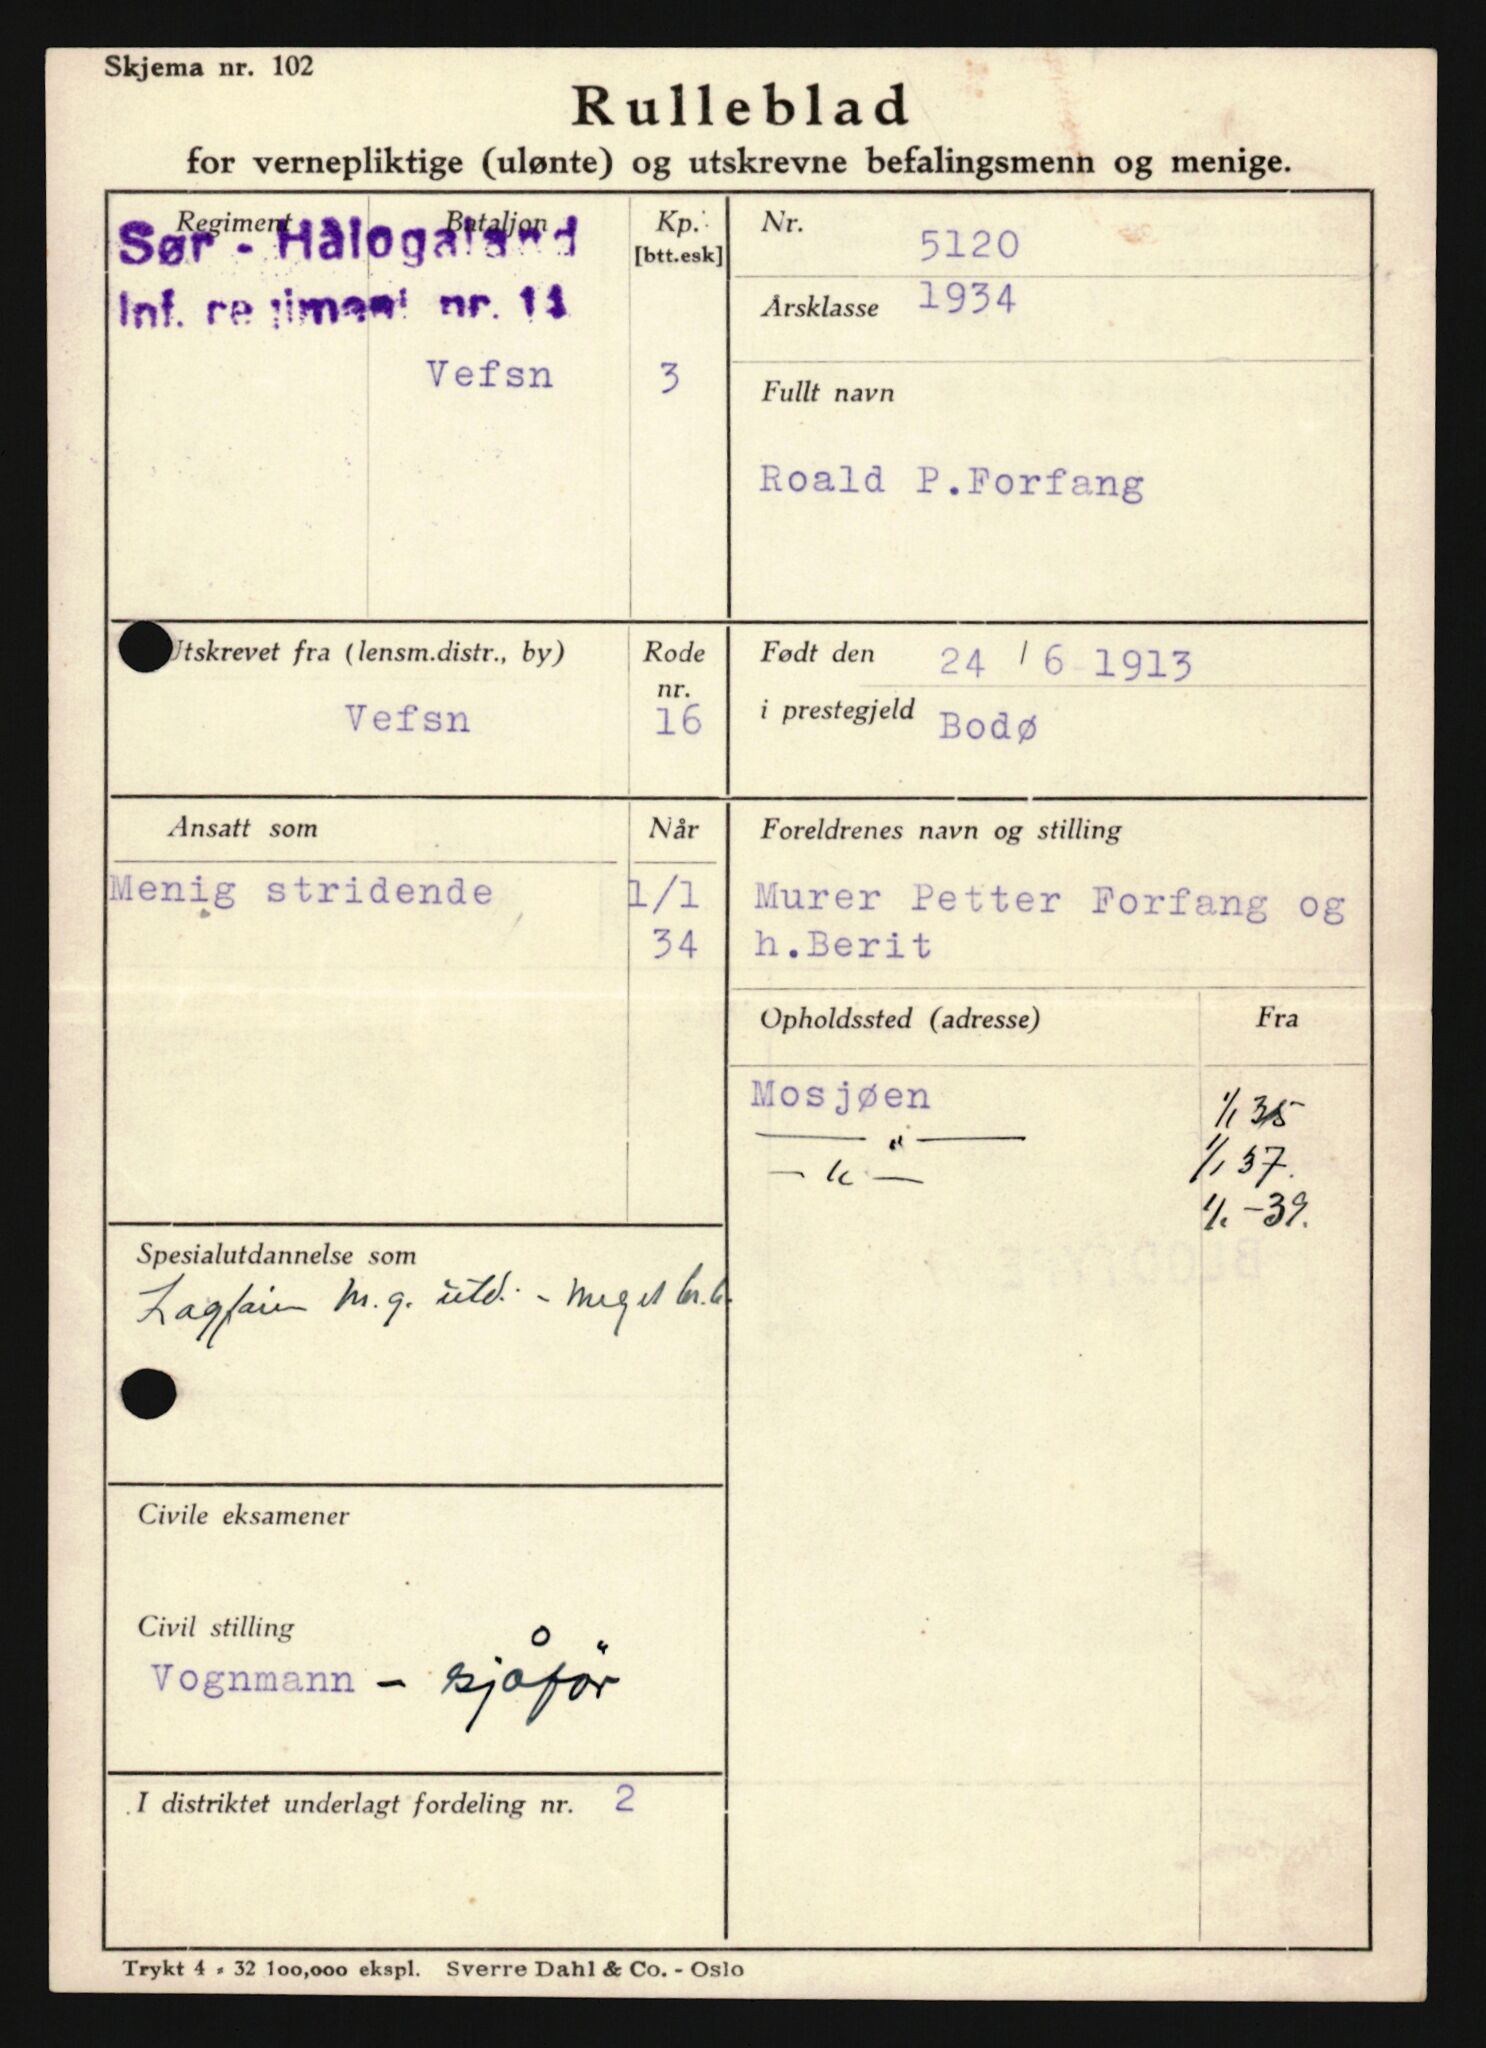 Skjema nr. 102
Rulleblad
for vernepliktige (ulønte) og utskrevne befalingsmenn og menige.
Regiment
Bataljon
Kp.
[btt.esk]
Sør - Hålogaland
Inf. regiment nr. 14
Vefsn
3
Nr.
5120
Årsklasse
1934
Fullt navn
Roald P.Forfang
Utskrevet fra (lensm.distr., by)
Vefsn
Rode
nr.
16
Født den 24 / 6 1913
i prestegjeld Bodø
Ansatt som
Når
Menig stridende
1/1
34
Foreldrenes navn og stilling
Murer Petter Forfang og
h.Berit
Opholdssted (adresse)
Fra
Mosjøen
1/1 35
— " —
1/1 37.
— " —
1/1 -39.
Spesialutdannelse som
M.g. utd. - meget
Civile eksamener
Civil stilling
Vognmann - sjåfør
I distriktet underlagt fordeling nr. 2
Trykt 4 - 32 100,000 ekspl. Sverre Dahl & Co. - Oslo